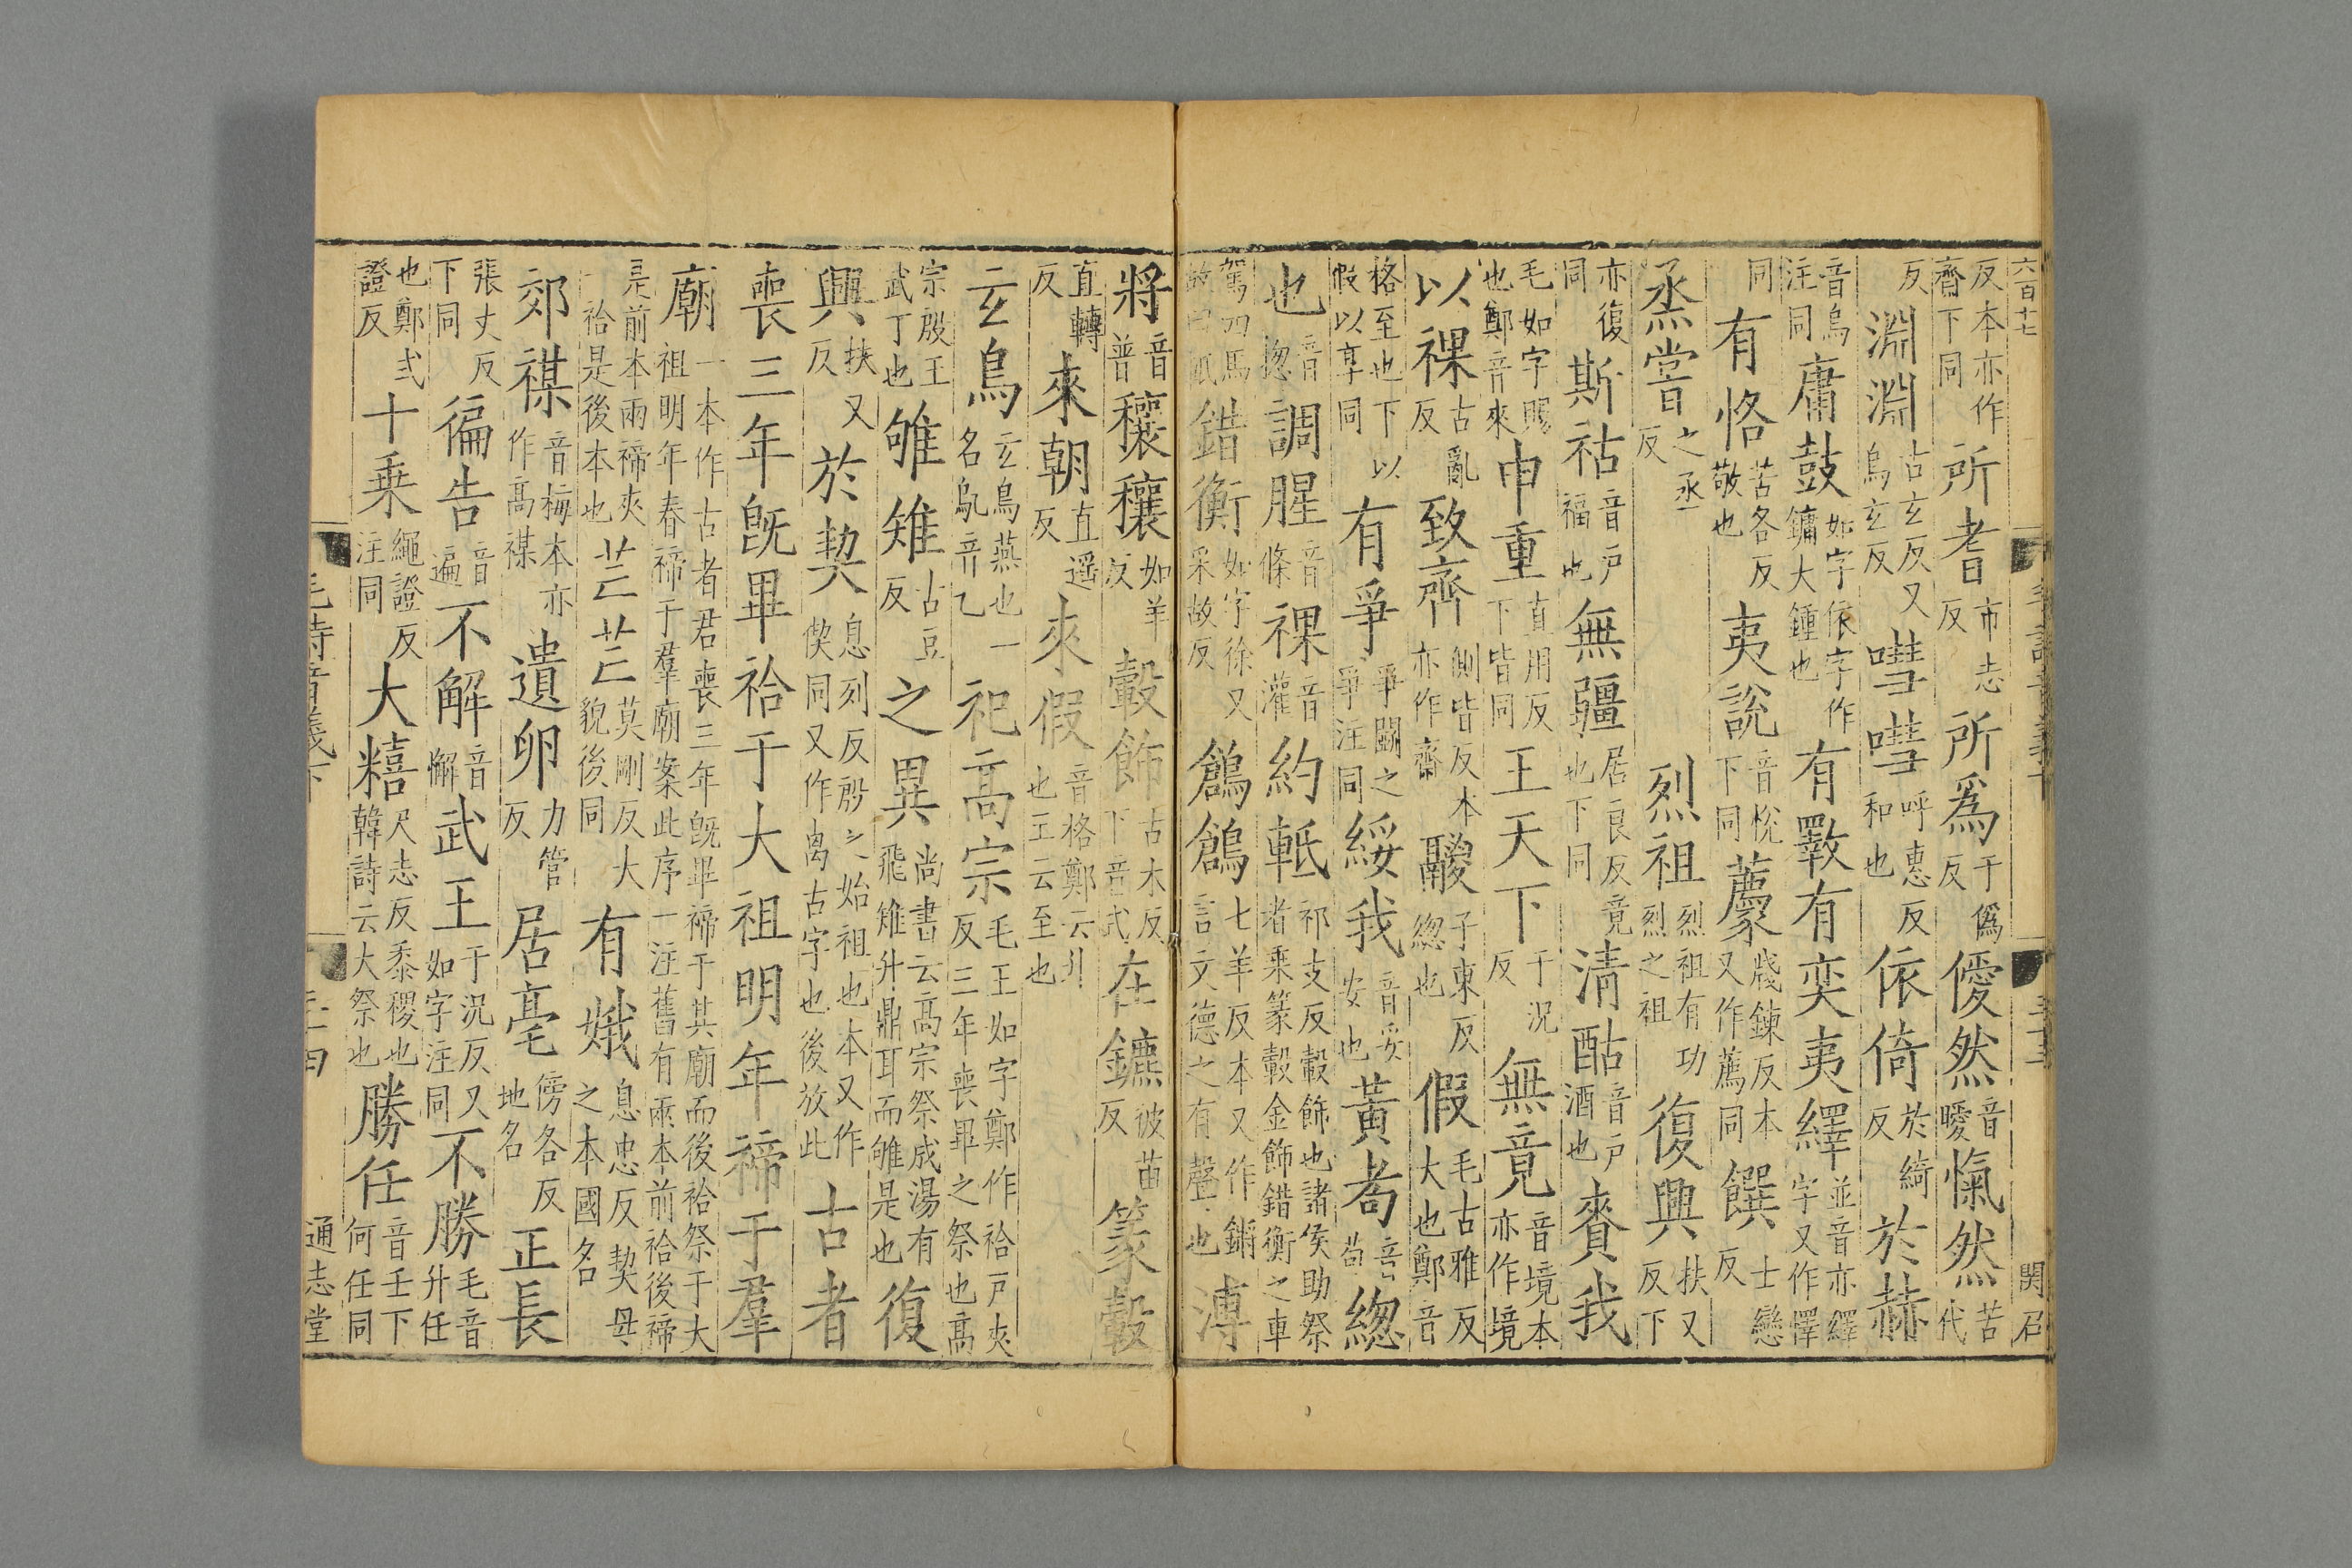 六百十七 毛詩音義下 三十三 関召
反本亦作齊下同所耆市志反所爲于僞反僾然音曖愾然苦代
反淵淵古玄反又烏玄反嘒嘒呼惠反和也依倚於綺反於赫
音烏注同庸鼓如字依字作鏞大鍾也有斁有奕夷繹並音亦繹字又作懌
同有恪苦各反敬也夷說音悅下同薦牋練反本又作薦同饌士戀反
烝嘗之丞反烈祖烈祖有功烈之祖復興扶又反下
亦復同斯祜音戶福也無疆居良反竟也下同清酤音戶酒也賚我
毛如字賜也鄭音來申重直用反下皆同王天下于況反無竟音境本亦作境
以祼古亂反致齊側皆反本亦作齋鬷子東反緫也假毛古雅反大也鄭音
格至也下以假以享同有爭爭鬬之爭注同綏我音妥安也黃耇音苟緫
也音揔調腥音條祼音灌約軧祁支反轂飾也諸侯助祭者乘篆轂金飾錯衡之車
駕四馬故曰軝錯衡如字徐又采故反鶬鶬七羊反本又作鏘言文德之有聲也溥
將音普穰穰如羊反轂飾古木反下音式在鑣彼苗反篆轂
直轉反來朝直遥反來假音格鄭云升也王云至也
玄鳥玄鳥燕也一名鳦音乙祀高宗毛王如字鄭作祫戶夾反三年喪畢之祭也高
宗殷王武丁也雊雉古豆反之異尚書云高宗祭成湯有飛雉升鼎耳而雊是也復
興扶又反於契息列反殷之始祖也本又作偰同又作禼古字也後放此古者
喪三年旣畢祫于大祖明年禘于羣
廟一本作古者君喪三年旣畢禘于其廟而後祫祭于大祖明年春禘于羣廟案此序一注舊有兩本前祫後禘
是前本兩禘夾一祫是後本也芒芒莫剛反大貌後同有娀息忠反契母之本國名
郊禖音梅本亦作高禖遺卵力管反居亳傍各反地名正長
張丈反下同徧告音遍不解音懈武王于況反又如字注同不勝毛音升任
也鄭式證反十乗繩證反注同大糦尺志反黍稷也韓詩云大祭也勝任音壬下何任同
毛詩音義下 三十四 通志堂